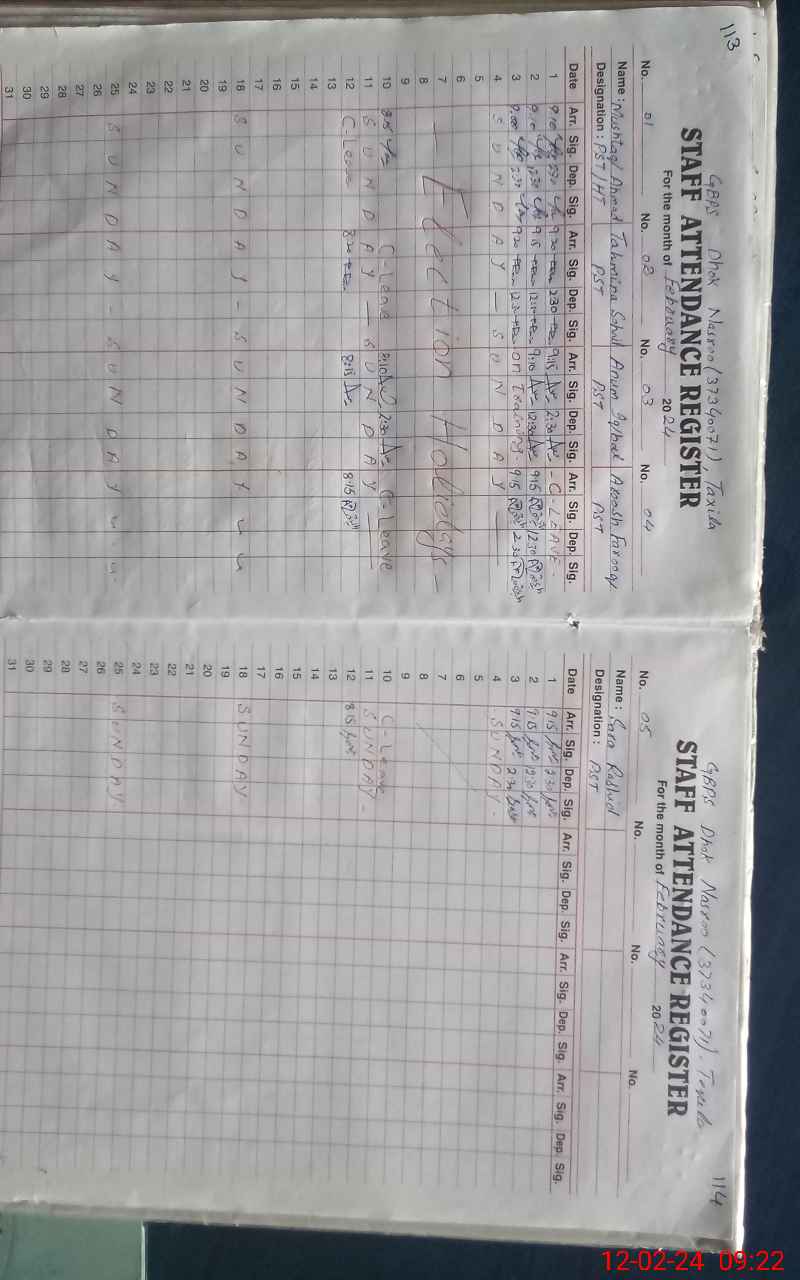 113
GBPS Dhok Nasroo (37340071), Taxila
STAFF ATTENDANCE REGISTER
For the month of February 2024
No. 01 No. 02 No. 03 No. 04
Name: Mushtaq Ahmad Tahmina Anum Iqbal Farooq
Designation: PST/HT PST PST PST
Date Arr. Sig. Dep. Sig. Arr. Sig. Dep. Sig. Arr. Sig. Dep. Sig. Arr. Sig. Dep. Sig.
1 9:10 2:30 9:20 2:30 9:15 2:30 - C-LEAVE -
2 9:10 12:30 9:15 9:10 12:30 9:15 12:30
3 9:00 2:30 9:20 on Training - 9:15 2:30
4 SUNDAY — SUNDAY —
5
6
7 — Election Holidays —
8
9
10 8:15 C-Leave 8:10 2:30 C-Leave
11 SUNDAY — SUNDAY —
12 C-Leave 8:20 8:15 8:15
13
14
15
16
17
18 SUNDAY - SUNDAY
19
20
21
22
23
24
25 SUNDAY - SUNDAY
26
27
28
29
30
31
114
GBPS Dhok Nasroo (37340071). Taxila
STAFF ATTENDANCE REGISTER
For the month of February 2024
No. 05 No. No. No.
Name: Sara Rashid
Designation: PST
Date Arr. Sig. Dep. Sig. Arr. Sig. Dep. Sig. Arr. Sig. Dep. Sig. Arr. Sig. Dep. Sig.
1 9:15 2:30
2 9:15 12:30
3 9:15 2:30
4 SUNDAY -
5
6
7
8
9
10 C-Leave
11 SUNDAY -
12 8:15
13
14
15
16
17
18 SUNDAY
19
20
21
22
23
24
25 SUNDAY
26
27
28
29
30
31
12-02-24 09:22